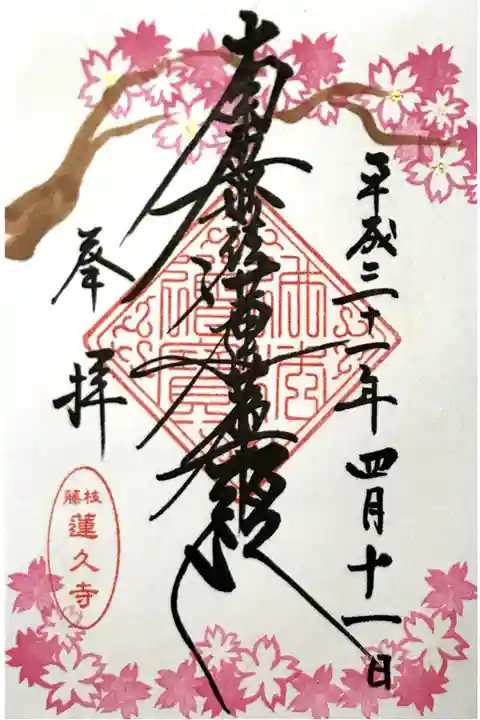 平成三十一年 四月十一日
南無妙法蓮華経
奉拝
佛法
僧寶
藤枝
蓮久寺